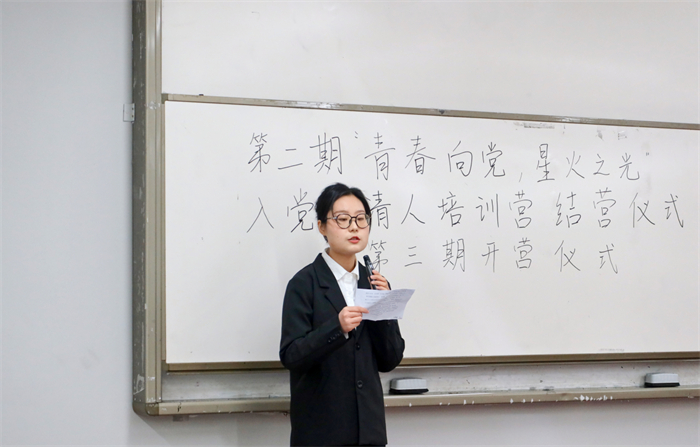 第二期“青春向党,星火之光”
入党 请人培训营结营仪式
第三期开营仪式